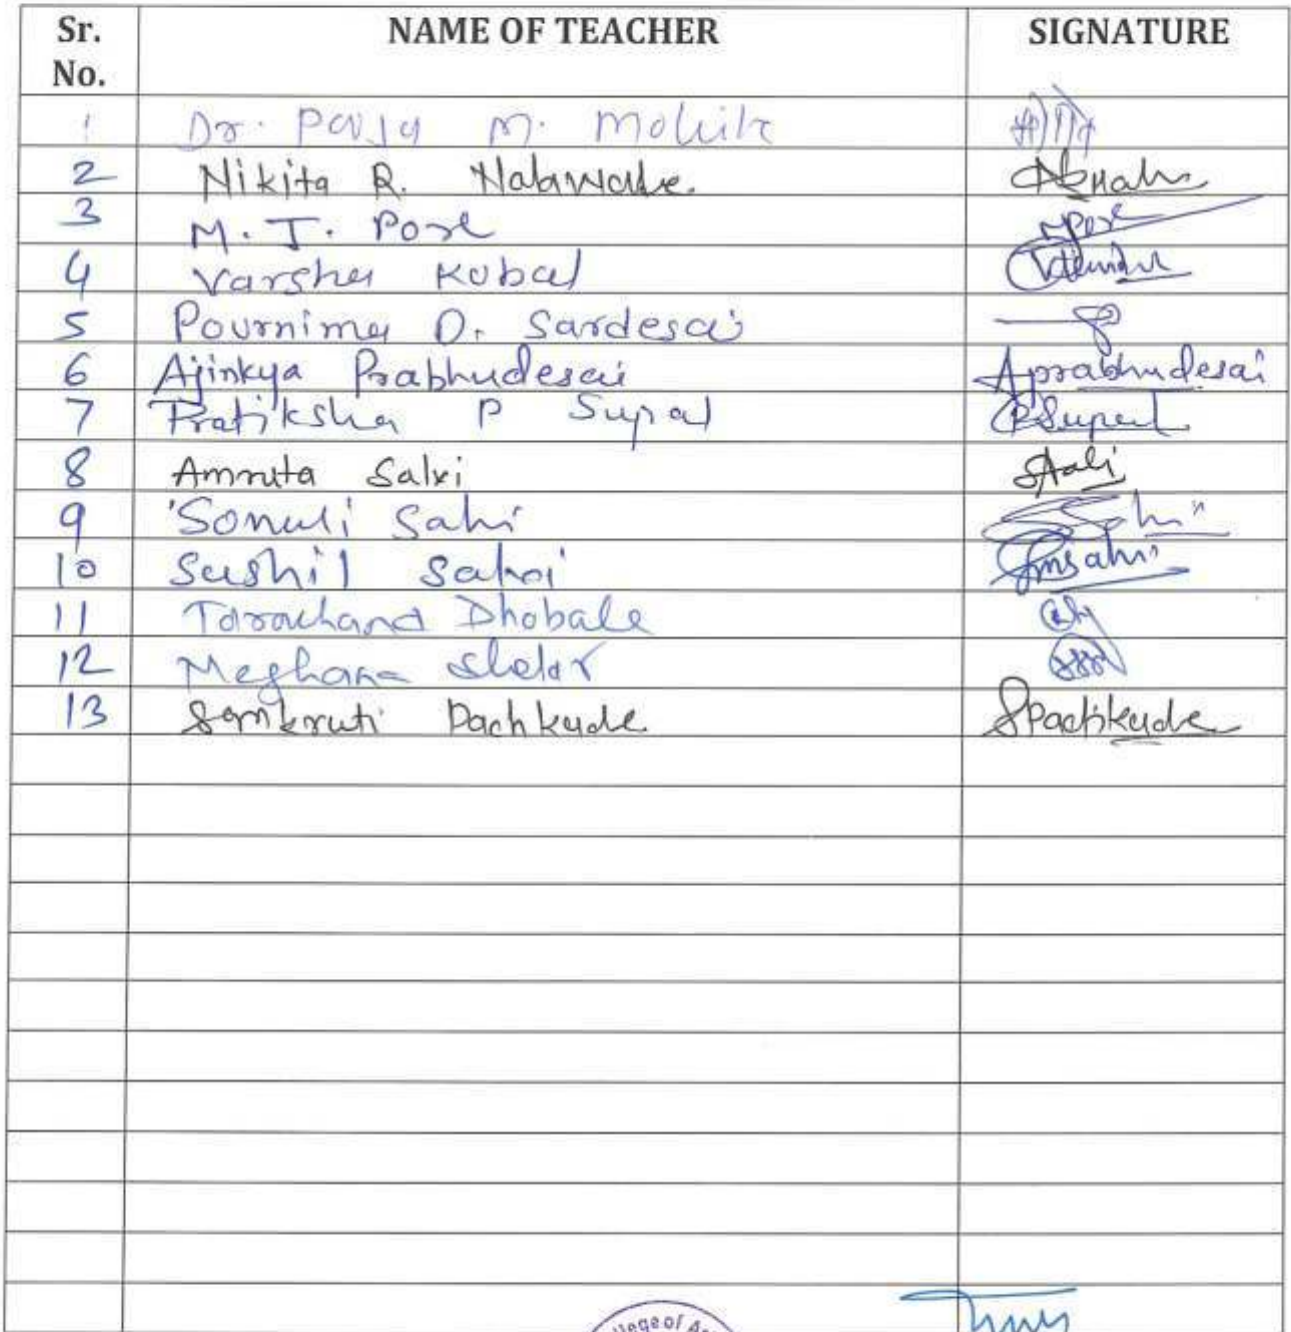 Sr. No. NAME OF TEACHER SIGNATURE
1 Dr. Pooja M. Mohite
2 Nikita R. Nalawade.
3 M. J. Pore MPore
4 Varsha Kubal
5 Pournima D. Sardesai
6 Ajinkya Prabhudesai Aprabhudesai
7 Pratiksha P Supal PSupal
8 Amruta Salvi
9 Sonali Salvi
10 Sushil Salvi
11 Tarachand Dhobale
12 Meghana Shelar
13 Sanskruti Pachkude SPachkude
llege of